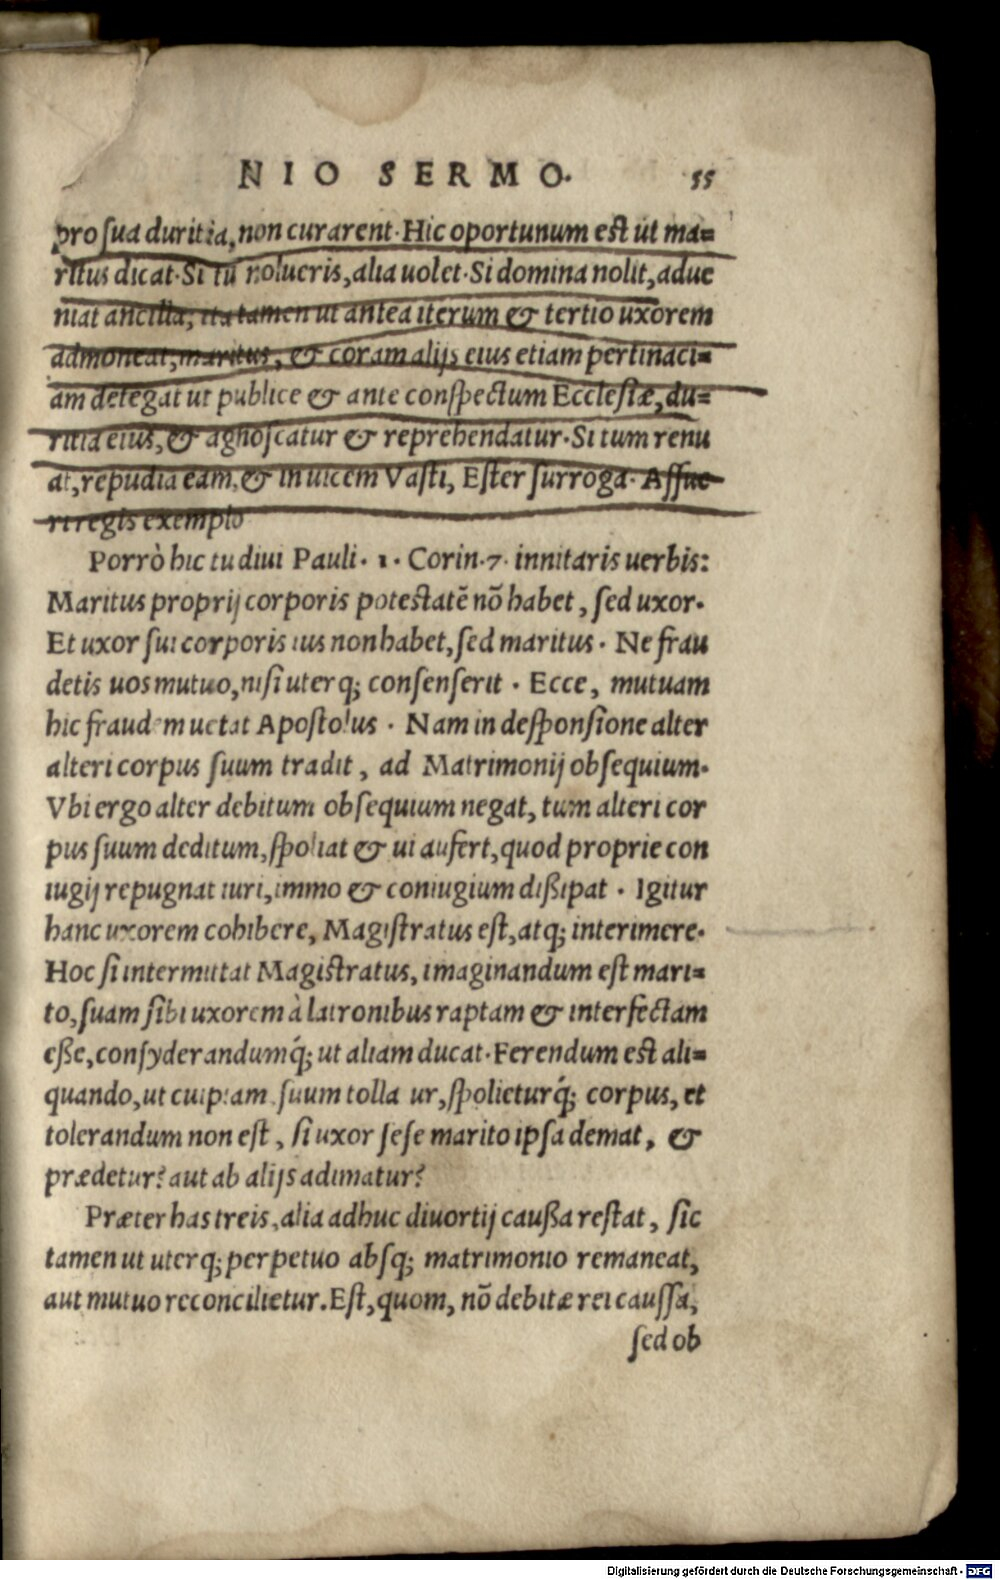 NIO SERMO. 55
pro sua duritia, non curarent. Hic oportunum est ut ma=
ritus dicat. Si tu nolueris, alia uolet. Si domina nolit, adue
niat ancilla, ita tamen ut antea iterum & tertio uxorem
admoneat, maritus, & coram alijs eius etiam pertinaci=
am detegat ut publice & ante conspectum Ecclesiæ, du=
ritia eius, & agnoscatur & reprehendatur. Si tum renu
at, repudia eam, & in uicem Vasti, Ester surroga. Assue
ri regis exemplo
Porrò hic tu diui Pauli. 1. Corin. 7. innitaris uerbis:
Maritus proprij corporis potestatē nō habet, sed uxor.
Et uxor sui corporis ius non habet, sed maritus. Ne frau
detis uos mutuo, nisi uterq; consenserit. Ecce, mutuam
hic fraudem uetat Apostolus. Nam in desponsione alter
alteri corpus suum tradit, ad Matrimonij obsequium.
Vbi ergo alter debitum obsequium negat, tum alteri cor
pus suum deditum, spoliat & ui aufert, quod proprie con
iugij repugnat iuri, immo & coniugium dißipat. Igitur
hanc uxorem cohibere, Magistratus est, atq; interimere.
Hoc si intermittat Magistratus, imaginandum est mari=
to, suam sibi uxorem à latronibus raptam & interfectam
eße, consyderandumq́; ut aliam ducat. Ferendum est ali=
quando, ut cuipiam suum tollatur, spolieturq́; corpus, et
tolerandum non est, si uxor sese marito ipsa demat, &
prædetur? aut ab alijs adimatur?
Præter has treis, alia adhuc diuortij caußa restat, sic
tamen ut uterq; perpetuo absq; matrimonio remaneat,
aut mutuo reconcilietur. Est, quom, nō debitæ rei caussa,
sed ob
Digitalisierung gefördert durch die Deutsche Forschungsgemeinschaft - DFG